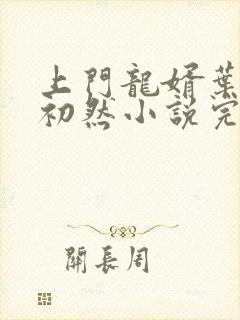 上門龍婿葉
初然小説完
關長周